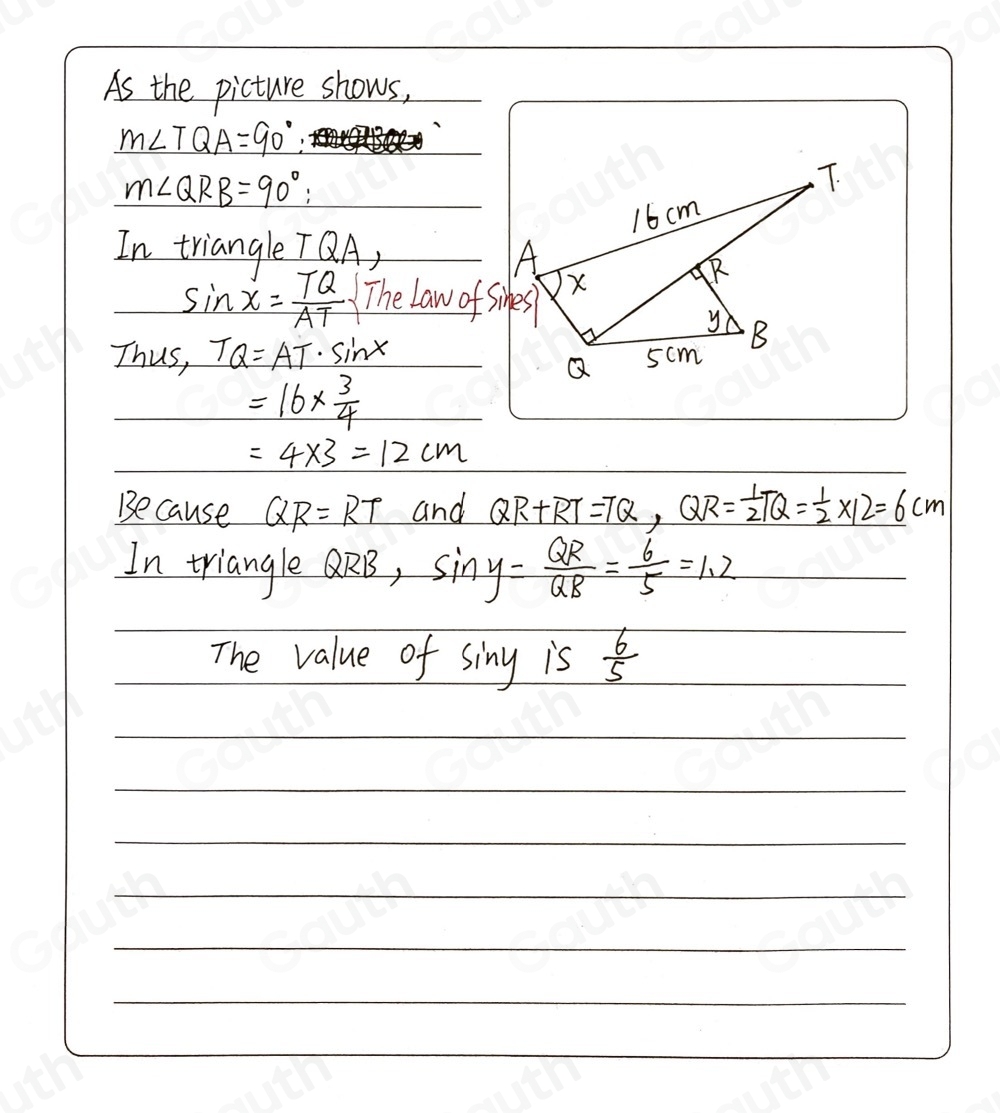 As the picture shows,
m∠TQA=90°;
m∠QRB=90°;
In triangle TQA,
sin x = TQ/AT {The Law of Sines}
Thus, TQ=AT·sinx
= 16×3/4
= 4×3 = 12 cm
Because QR=RT and QR+RT=TQ, QR=1/2TQ=1/2×12=6cm
In triangle QRB, siny=QR/QB=6/5=1.2
The value of siny is 6/5
T
16 cm
A
x
R
y
B
Q
5cm
Gauth